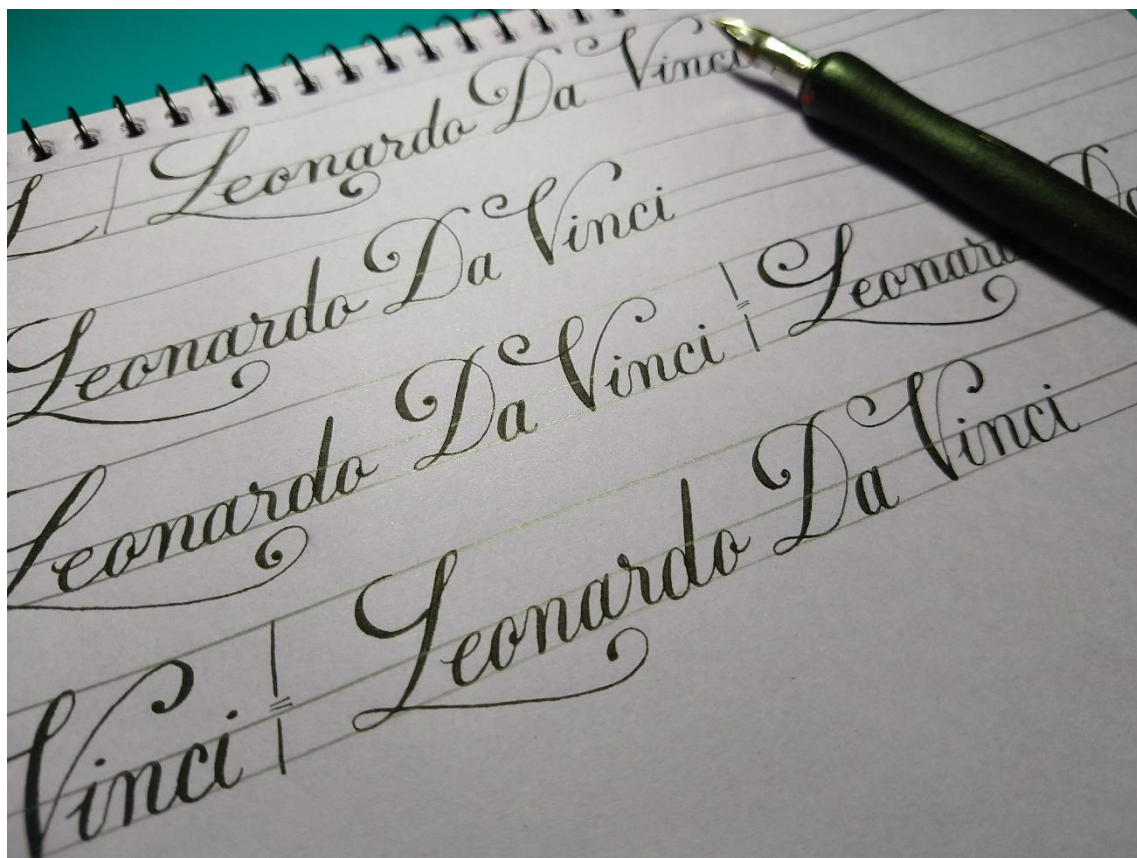 L Leonardo Da Vinci
Leonardo Da Vinci
Leonardo Da Vinci = Leonardo Da
Vinci = Leonardo Da Vinci